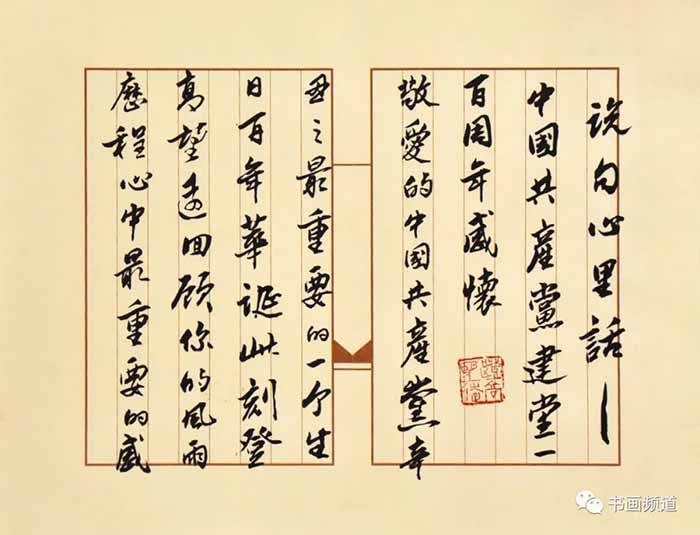 说句心里話—
中國共産黨建党一
百周年感懷
敬愛的中國共産黨辛
丑之最重要的一个生
日百年華诞此刻登
高望遠回顾你的風雨
歷程心中最重要的感
书画频道